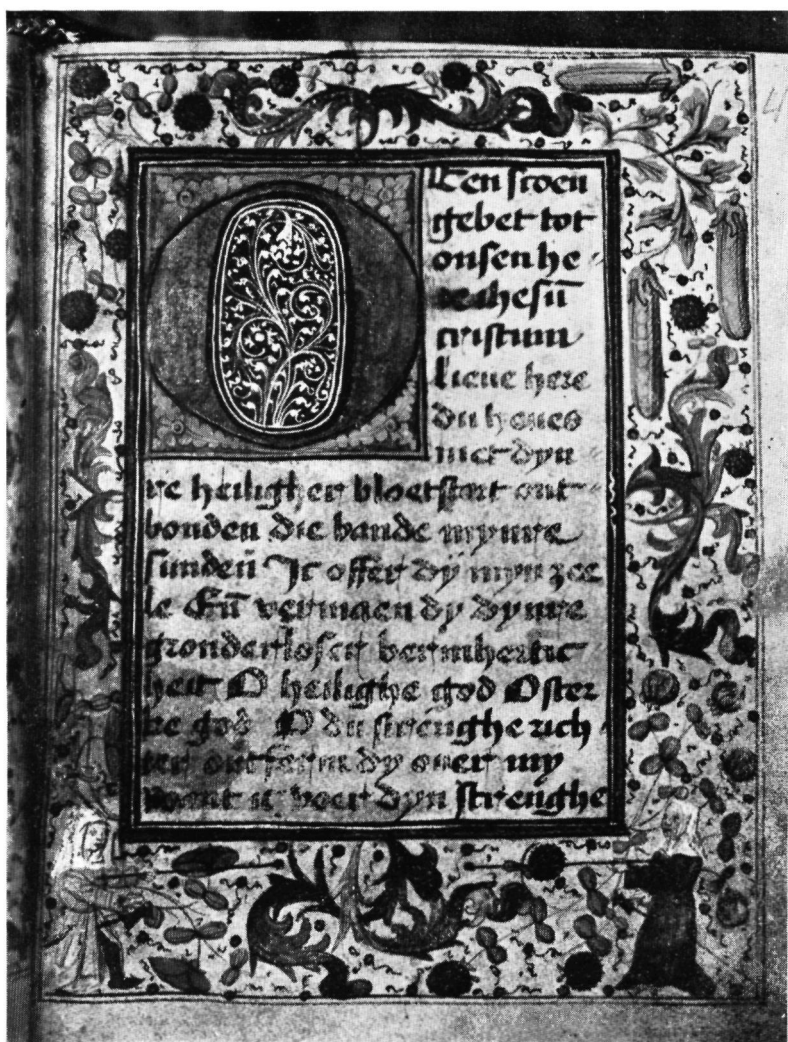 Een scoen
gebet tot
onsen he
re ihesū
cristum
O lieue here
du heues
met dyn
re heiligher bloetstort ont
bonden die bande mynre
sunden Ic offer dy myn zee
le Eñ vermaen dy dynre
gronderloser bermhertic
heit O heilighe god O ster
ke god O du strenghe rich
ter ontferm dy ouer my
want ic voer dyn strenghe